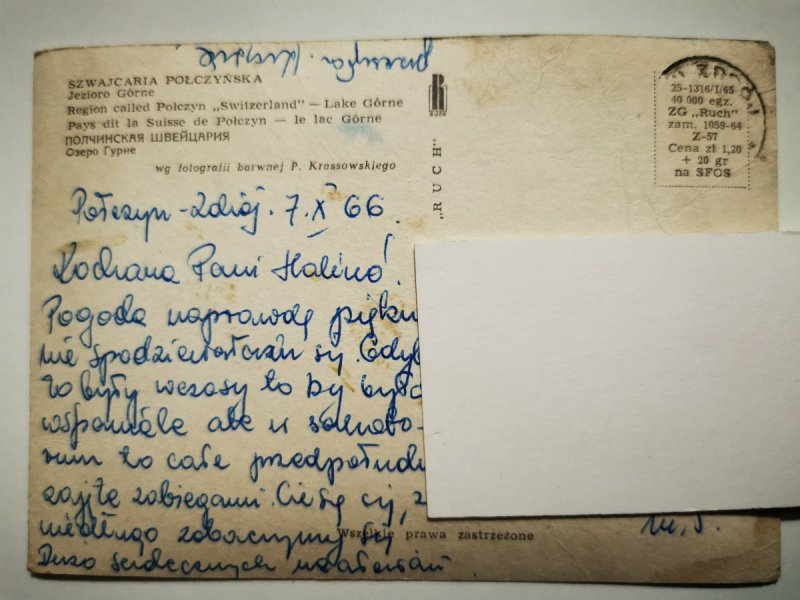 SZWAJCARIA POŁCZYŃSKA
Jezioro Górne
Region called Połczyn „Switzerland" — Lake Górne
Pays dit la Suisse de Połczyn — le lac Górne
ПОЛЧИНСКАЯ ШВЕЙЦАРИЯ
Озеро Гурне
wg fotografii barwnej P. Krassowskiego
"RUCH"
RUCH
ZDRÓJ
25-1316/I/65
40 000 egz.
ZG „Ruch"
zam. 1059-64
Z-57
Cena zł 1,20
+ 20 gr
na SFOS
Połczyn-Zdrój. 7.X 66.
Kochana Pani Halino!
Pogoda naprawdę piękn
nie spodziewałam się. Gdyb
to były wczasy to by było
wspaniale ale w sanato-
rium to całe przedpołudn
zajęte zabiegami. Cieszę się, ż
niedługo zobaczymy się
Dużo serdecznych ucałowań
przesyła Krystyna
Wszelkie prawa zastrzeżone